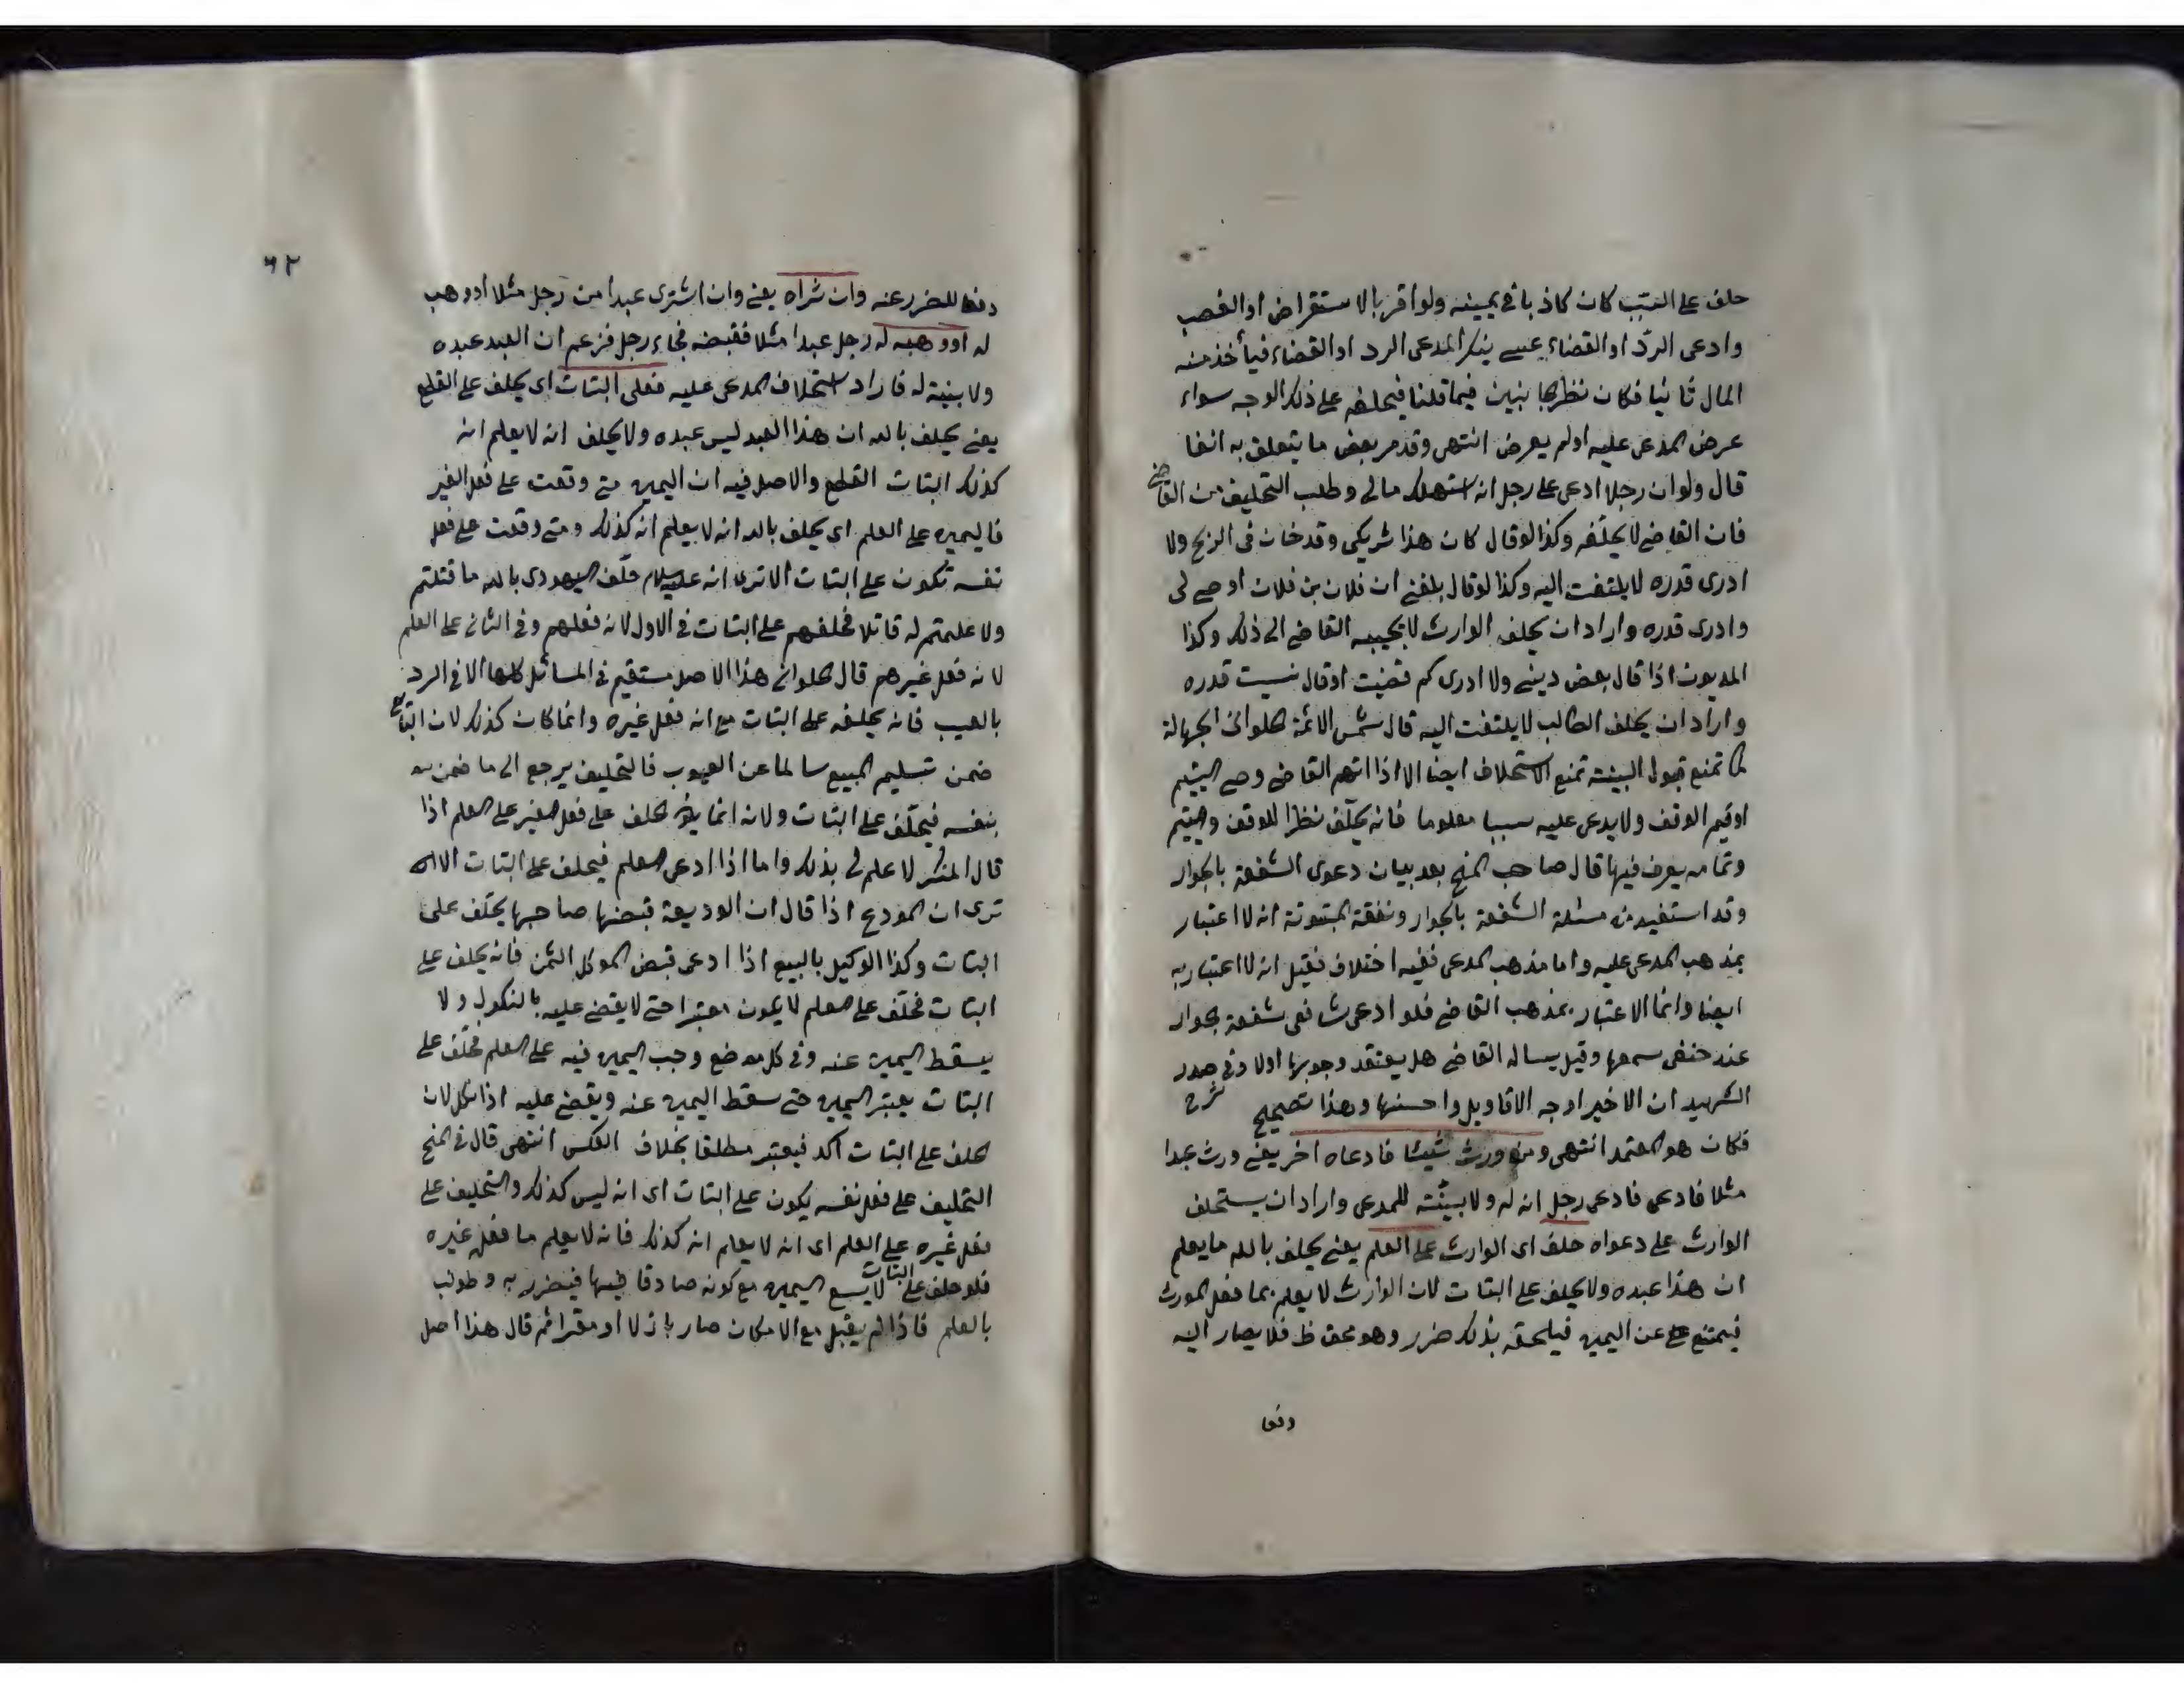 حلف على السبب كان كاذبا في يمينه ولو اقر بالاستقراض او الغصب
وادعى الردّ او القضاء عسى ينكر المدعى الرد او القضاء فيأخذ منه
المال ثانيا فكان نظرها بنين فيما قلنا فيحلفه على ذلك الوجه سواء
عرض المدعى عليه او لم يعرض انتهى وقد مر بعض ما يتعلق به انفا
قال ولو ان رجلا ادعى على رجل انه استهلك مالى وطلب التحليف من القاضى
فان القاضى لا يحلّفه وكذا لو قال كان هذا شريكى وقد خان فى الربح ولا
ادرى قدره لا يلتفت اليه وكذا لو قال بلغنى ان فلان بن فلان اوصى لى
وادرى قدره واراد ان يحلف الوارث لا يجيبه القاضى الى ذلك وكذا
المديون اذا قال بعض دينى ولا ادرى كم قضيت او قال نسيت قدره
واراد ان يحلف الطالب لا يلتفت اليه قال شمس الائمة الحلوانى الجهالة
كما تمنع قبول البينة تمنع الاستحلاف ايضا الا اذا اتهم القاضى وصى اليتيم
او قيم الوقف ولا يدعى عليه سببا معلوما فانه يحلّف نظرا للوقف واليتيم
وتمامه يعرف فيها قال صاحب المنح بعد بيان دعوى الشفعة بالجوار
وقد استفيد من مسئلة الشفعة بالجوار ونفقة المبتوتة انه لا اعتبار
بمذهب المدعى عليه واما مذهب المدعى ففيه اختلاف فقيل انه لا اعتبار به
ايضا وانما الاعتبار بمذهب القاضى فلو ادعى شافعى شفعة بجوار
عند حنفى سمعها وقيل يساله القاضى هل يعتقد وجوبها اولا وفى صدر
الشهيد ان الاخير اوجه الاقاويل واحسنها وهذا تصحيح شرح
فكان هو المعتمد انتهى ومن ورث شيئا فادعاه اخر يعنى ورث عبدا
مثلا فادعى فادعى رجل انه له ولا بيّنة للمدعى واراد ان يستحلف
الوارث على دعواه حلف اى الوارث على العلم يعنى يحلف بالله ما يعلم
ان هذا عبده ولا يحلف على البتات لان الوارث لا يعلم بما فعل المورث
فيمتنع عن اليمين فيلحقه بذلك ضرر وهو محق ظ فلا يصار اليه
دفعا
٦٢
دفعا للضرر عنه وان شراه يعنى وان اشترى عبدا من رجل مثلا او وهب
له او وهبه له رجل عبدا مثلا فقبضه فجاء رجل فزعم ان العبد عبده
ولا بينة له فاراد استحلاف المدعى عليه فعلى البتات اى يحلف على القطع
يعنى يحلف بالله ان هذا العبد ليس عبده ولا يحلف انه لا يعلم انه
كذلك البتات القطع والاصل فيه ان اليمين متى وقعت على فعل الغير
فاليمين على العلم اى يحلف بالله انه لا يعلم انه كذلك ومتى وقعت على فعل
نفسه تكون على البتات الا ترى انه عليه السلام حلّف اليهودى بالله ما قتلتم
ولا علمتم له قاتلا فحلفهم على البتات فى الاول لانه فعلهم وفى الثانى على العلم
لانه فعل غيرهم قال الحلوانى هذا الاصل مستقيم فى المسائل كلها الا فى الرد
بالعيب فانه يحلفه على البتات مع انه فعل غيره وانما كان كذلك لان البائع
ضمن تسليم المبيع سالما عن العيوب فالتحليف يرجع الى ما ضمن
بنفسه فيحلّف على البتات ولانه انما يؤثر الحلف على فعل الغير على العلم اذا
قال المنكر لا علم لى بذلك واما اذا ادعى العلم فيحلف على البتات الا
ترى ان المودع اذا قال ان الوديعة قبضها صاحبها يحلّف على
البتات وكذا الوكيل بالبيع اذا ادعى قبض الموكل الثمن فانه يحلف على
البتات فحلّف على العلم لا يكون معتبرا حتى لا يقضى عليه بالنكول ولا
يسقط اليمين عنه وفى كل موضع وجب اليمين فيه على العلم فحلّف على
البتات يعتبر اليمين حتى سقط اليمين عنه ويقضى عليه اذا نكل لان
الحلف على البتات اكد فيعتبر مطلقا بخلاف العكس انتهى قال فى المنح
التحليف على فعل نفسه يكون على البتات اى انه ليس كذلك والتحليف على
فعل غيره على العلم اى انه لا يعلم انه كذلك فانه لا يعلم ما فعل غيره
فلو حلف على البتات لا يسع اليمين مع كونه صادقا فيها فيضرر به وطولب
بالعلم فاذا لم يقبل مع الامكان صار باذلا او مقرا ثم قال هذا اصل